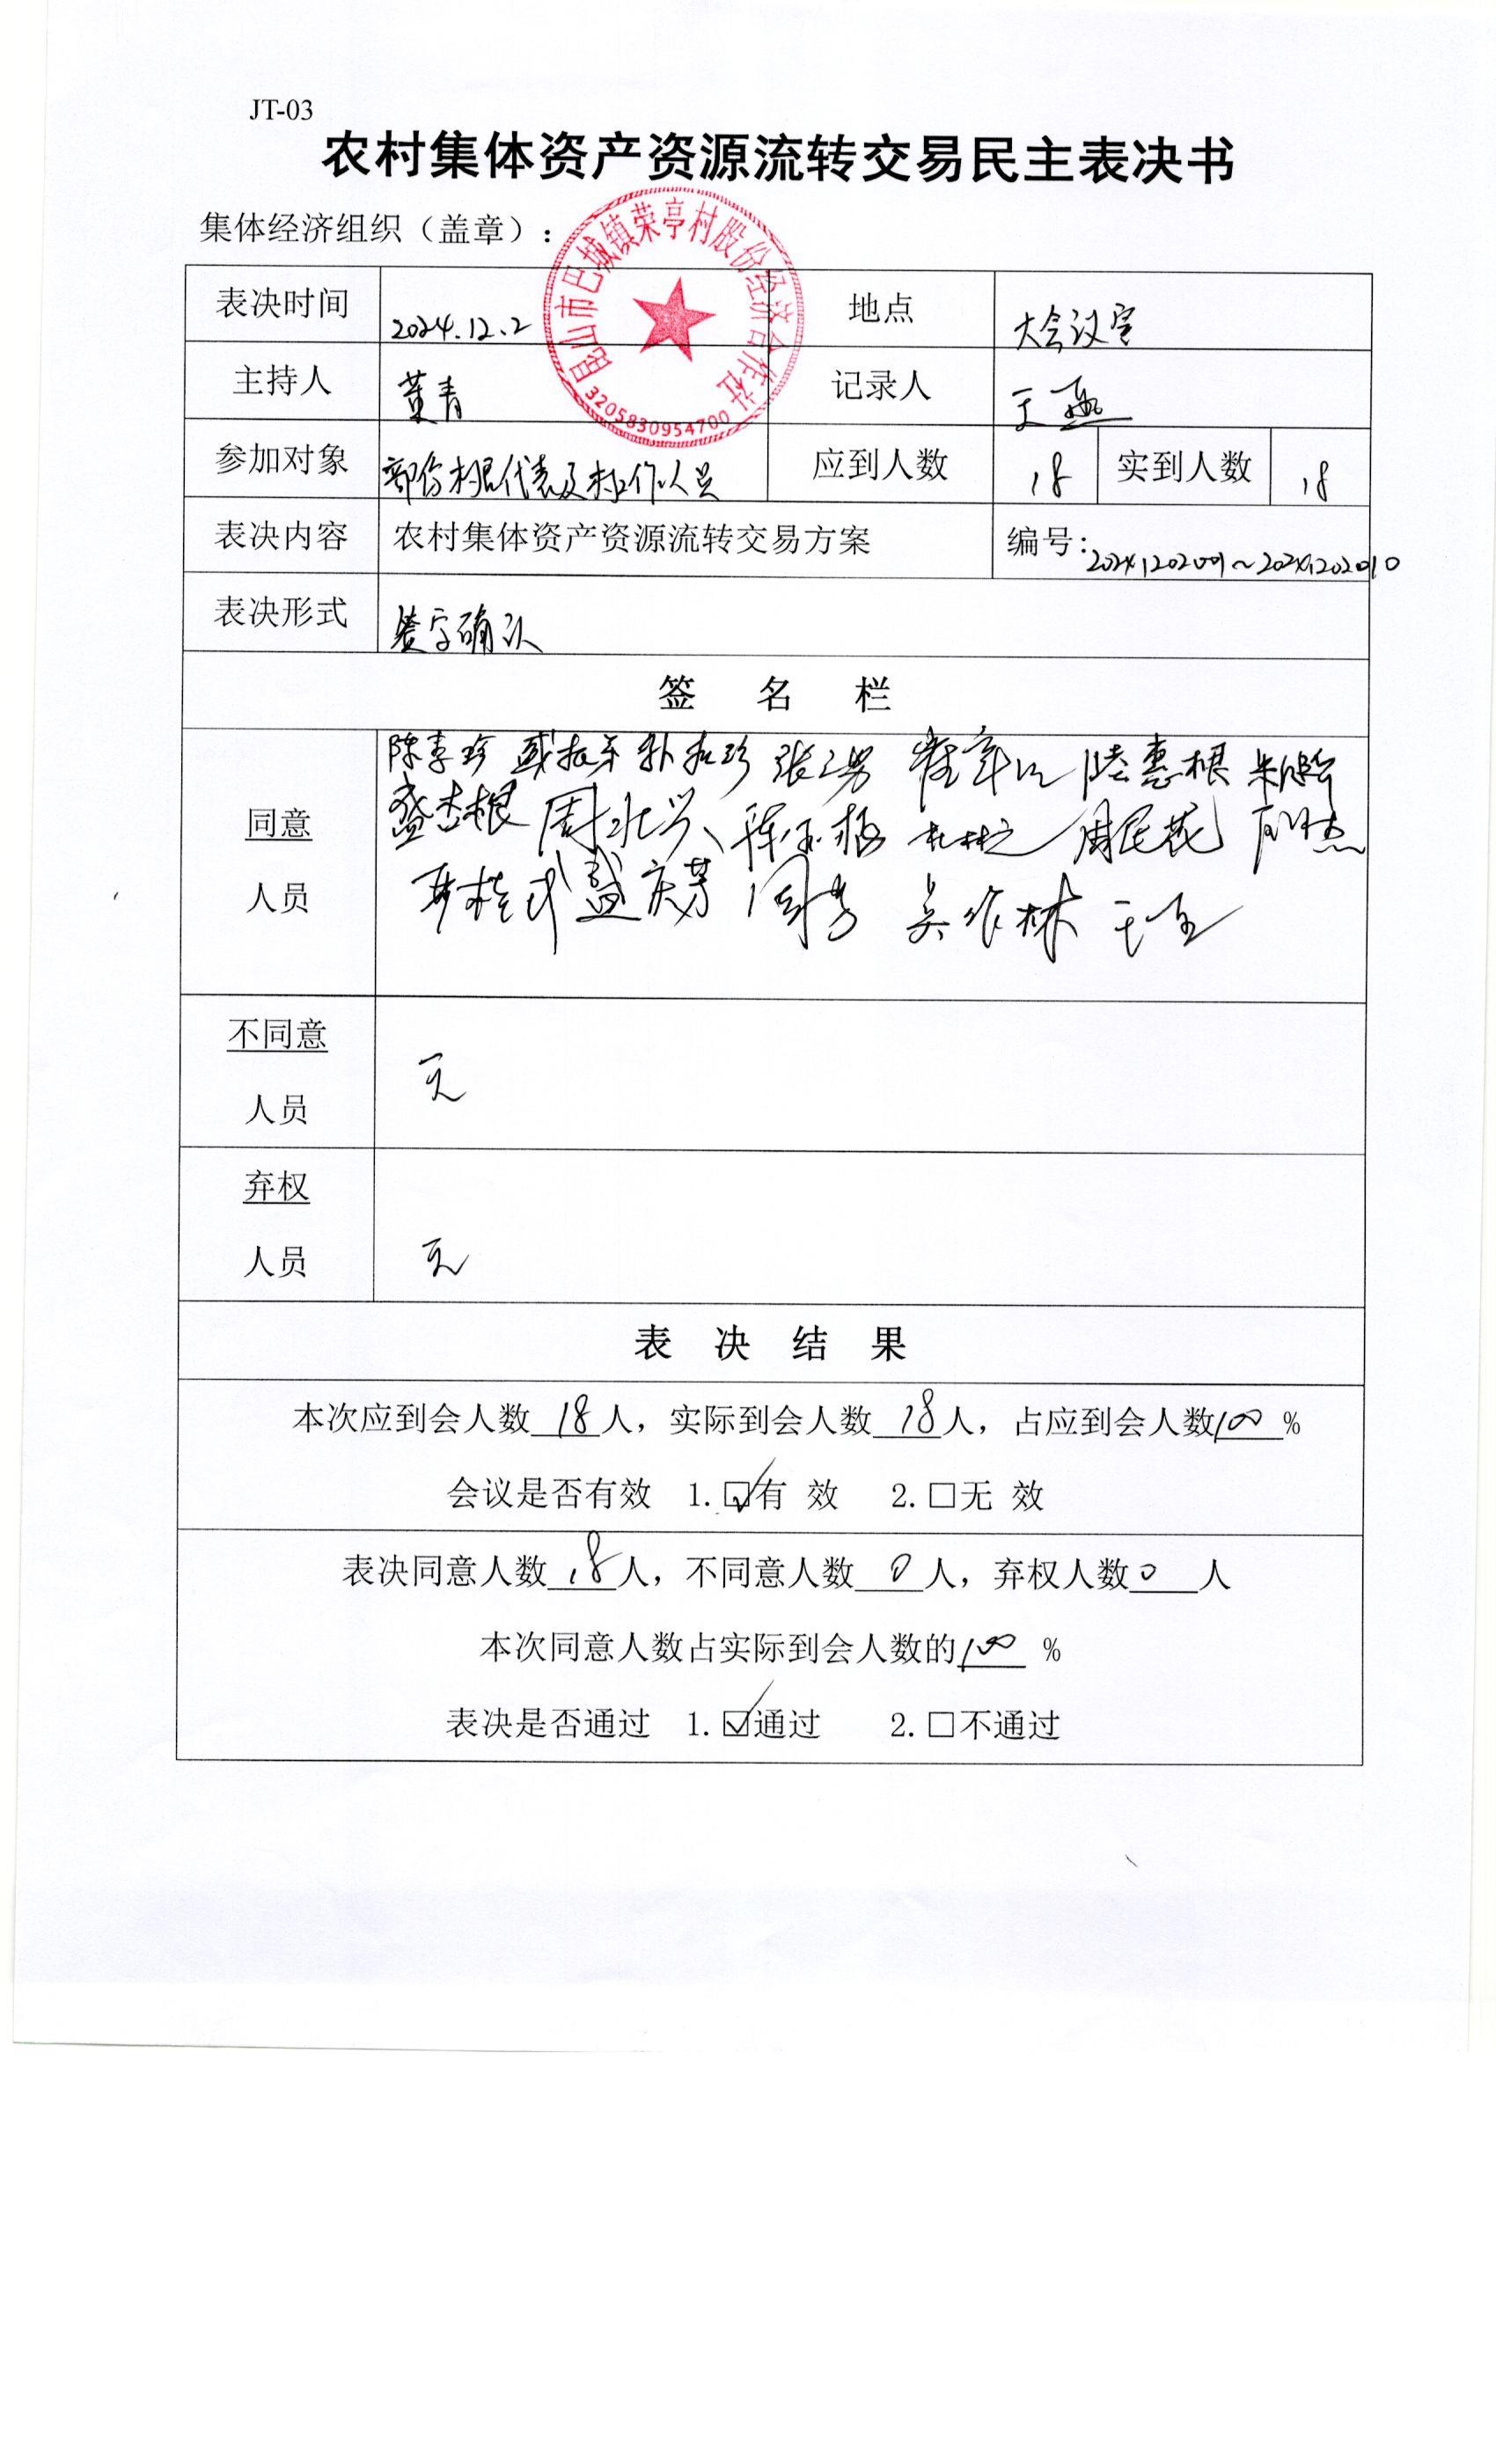 JT-03
农村集体资产资源流转交易民主表决书
集体经济组织（盖章）：
昆山市巴城镇荣亭村股份经济合作社
3205830954700
表决时间 2024.12.2 地点 大会议室
主持人 黄青 记录人
参加对象 部份村民代表及村工作人员 应到人数 18 实到人数 18
表决内容 农村集体资产资源流转交易方案 编号：20241202001～20241202010
表决形式 签字确认
签 名 栏
同意
人员
陈李珍 张三男 陆惠根
盛杏根 周北兴、
盛庆芳 周青
不同意
人员
无
弃权
人员
无
表 决 结 果
本次应到会人数 18 人，实际到会人数 18 人，占应到会人数 100 %
会议是否有效 1.☑有 效 2.□无 效
表决同意人数 18 人，不同意人数 0 人，弃权人数 0 人
本次同意人数占实际到会人数的 100 %
表决是否通过 1.☑通过 2.□不通过